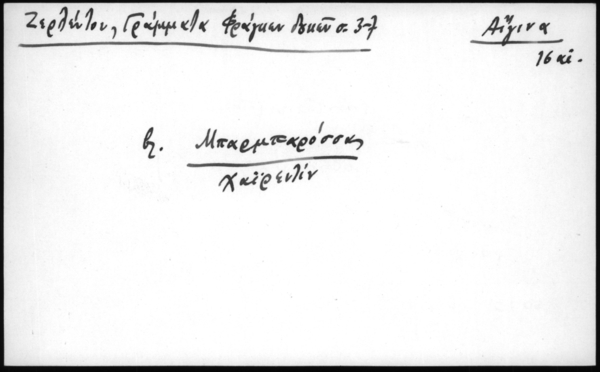 Ζερλέντου, Γράμματα Φράγκων σ. 3-7
Αἴγινα
16 αἰ.
βλ. Μπαρμπαρόσσας
Χαϊρεντίν